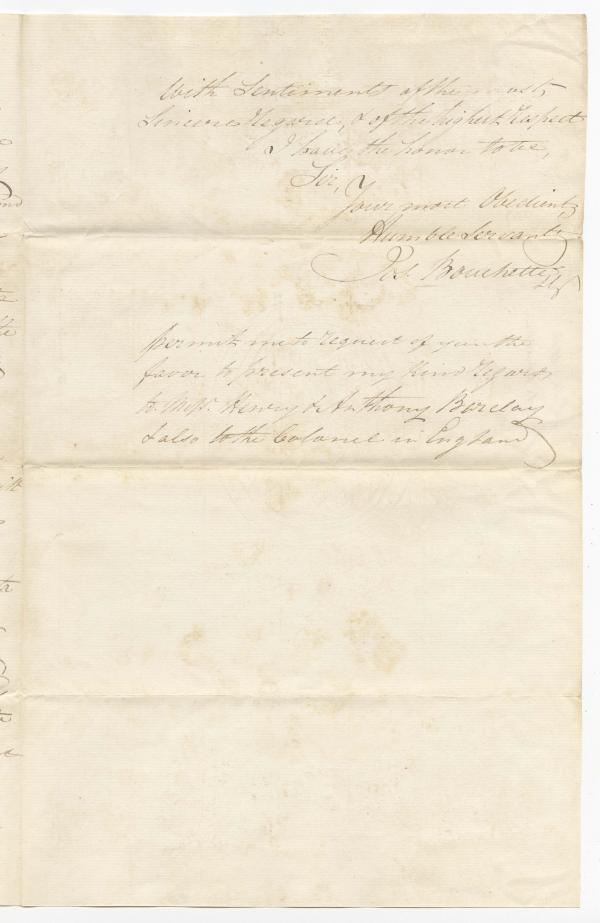 With Sentiments of the most
Sincere Regard, & of the highest Respect
I have the honor to be,
Sir,
Your most Obedient
Humble Servant
Jos. Bouchette
permit me to request of you the
favor to present my Kind Regards
to Messrs. Henry & Anthony Barclay
& also to the Colonel in England